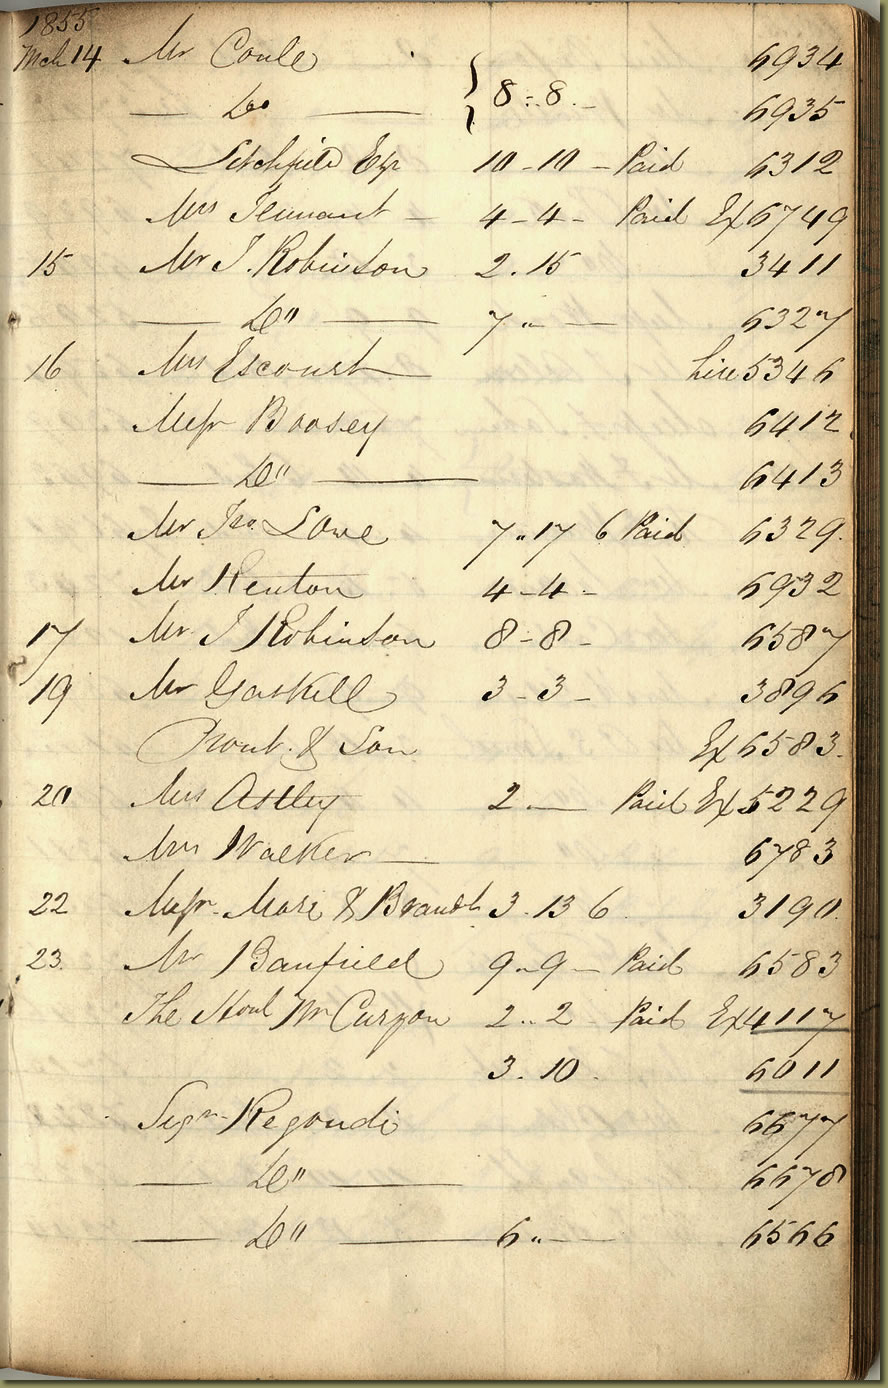 1855
Mch 14 Mr Coule 6934
— Do — } 8 - 8 - 6935
Litchfield Esqr 10 - 10 - Paid 6312
Mrs Tennant - 4 - 4 - Paid Ex 6749
15 Mr J. Robinson 2 . 15 3411
— Do" — 7 " — 6327
16 Mrs Escourt hire 5346
Messr Boosey 6412
— Do" — 6413
Mr Jno Lowe 7 " 17 6 Paid 6329
Mr Kenton 4 - 4 - 6932
17 Mr J Robinson 8 - 8 - 6587
19 Mr Gaskill 3 - 3 - 3896
Prout & Son Ex 6583
20 Mrs Astley 2 — Paid Ex 5229
Mrs Walker — 6783
22 Messr. & Brandt 3 . 13 6 3190
23 Mr Banfield 9 " 9 - Paid 6583
The Honl Mr Curzon 2 .. 2 - Paid Ex 4117
3 . 10 . 6011
Sigr Regondi 6677
— Do" — 6678
— Do" — 6 " — 6566